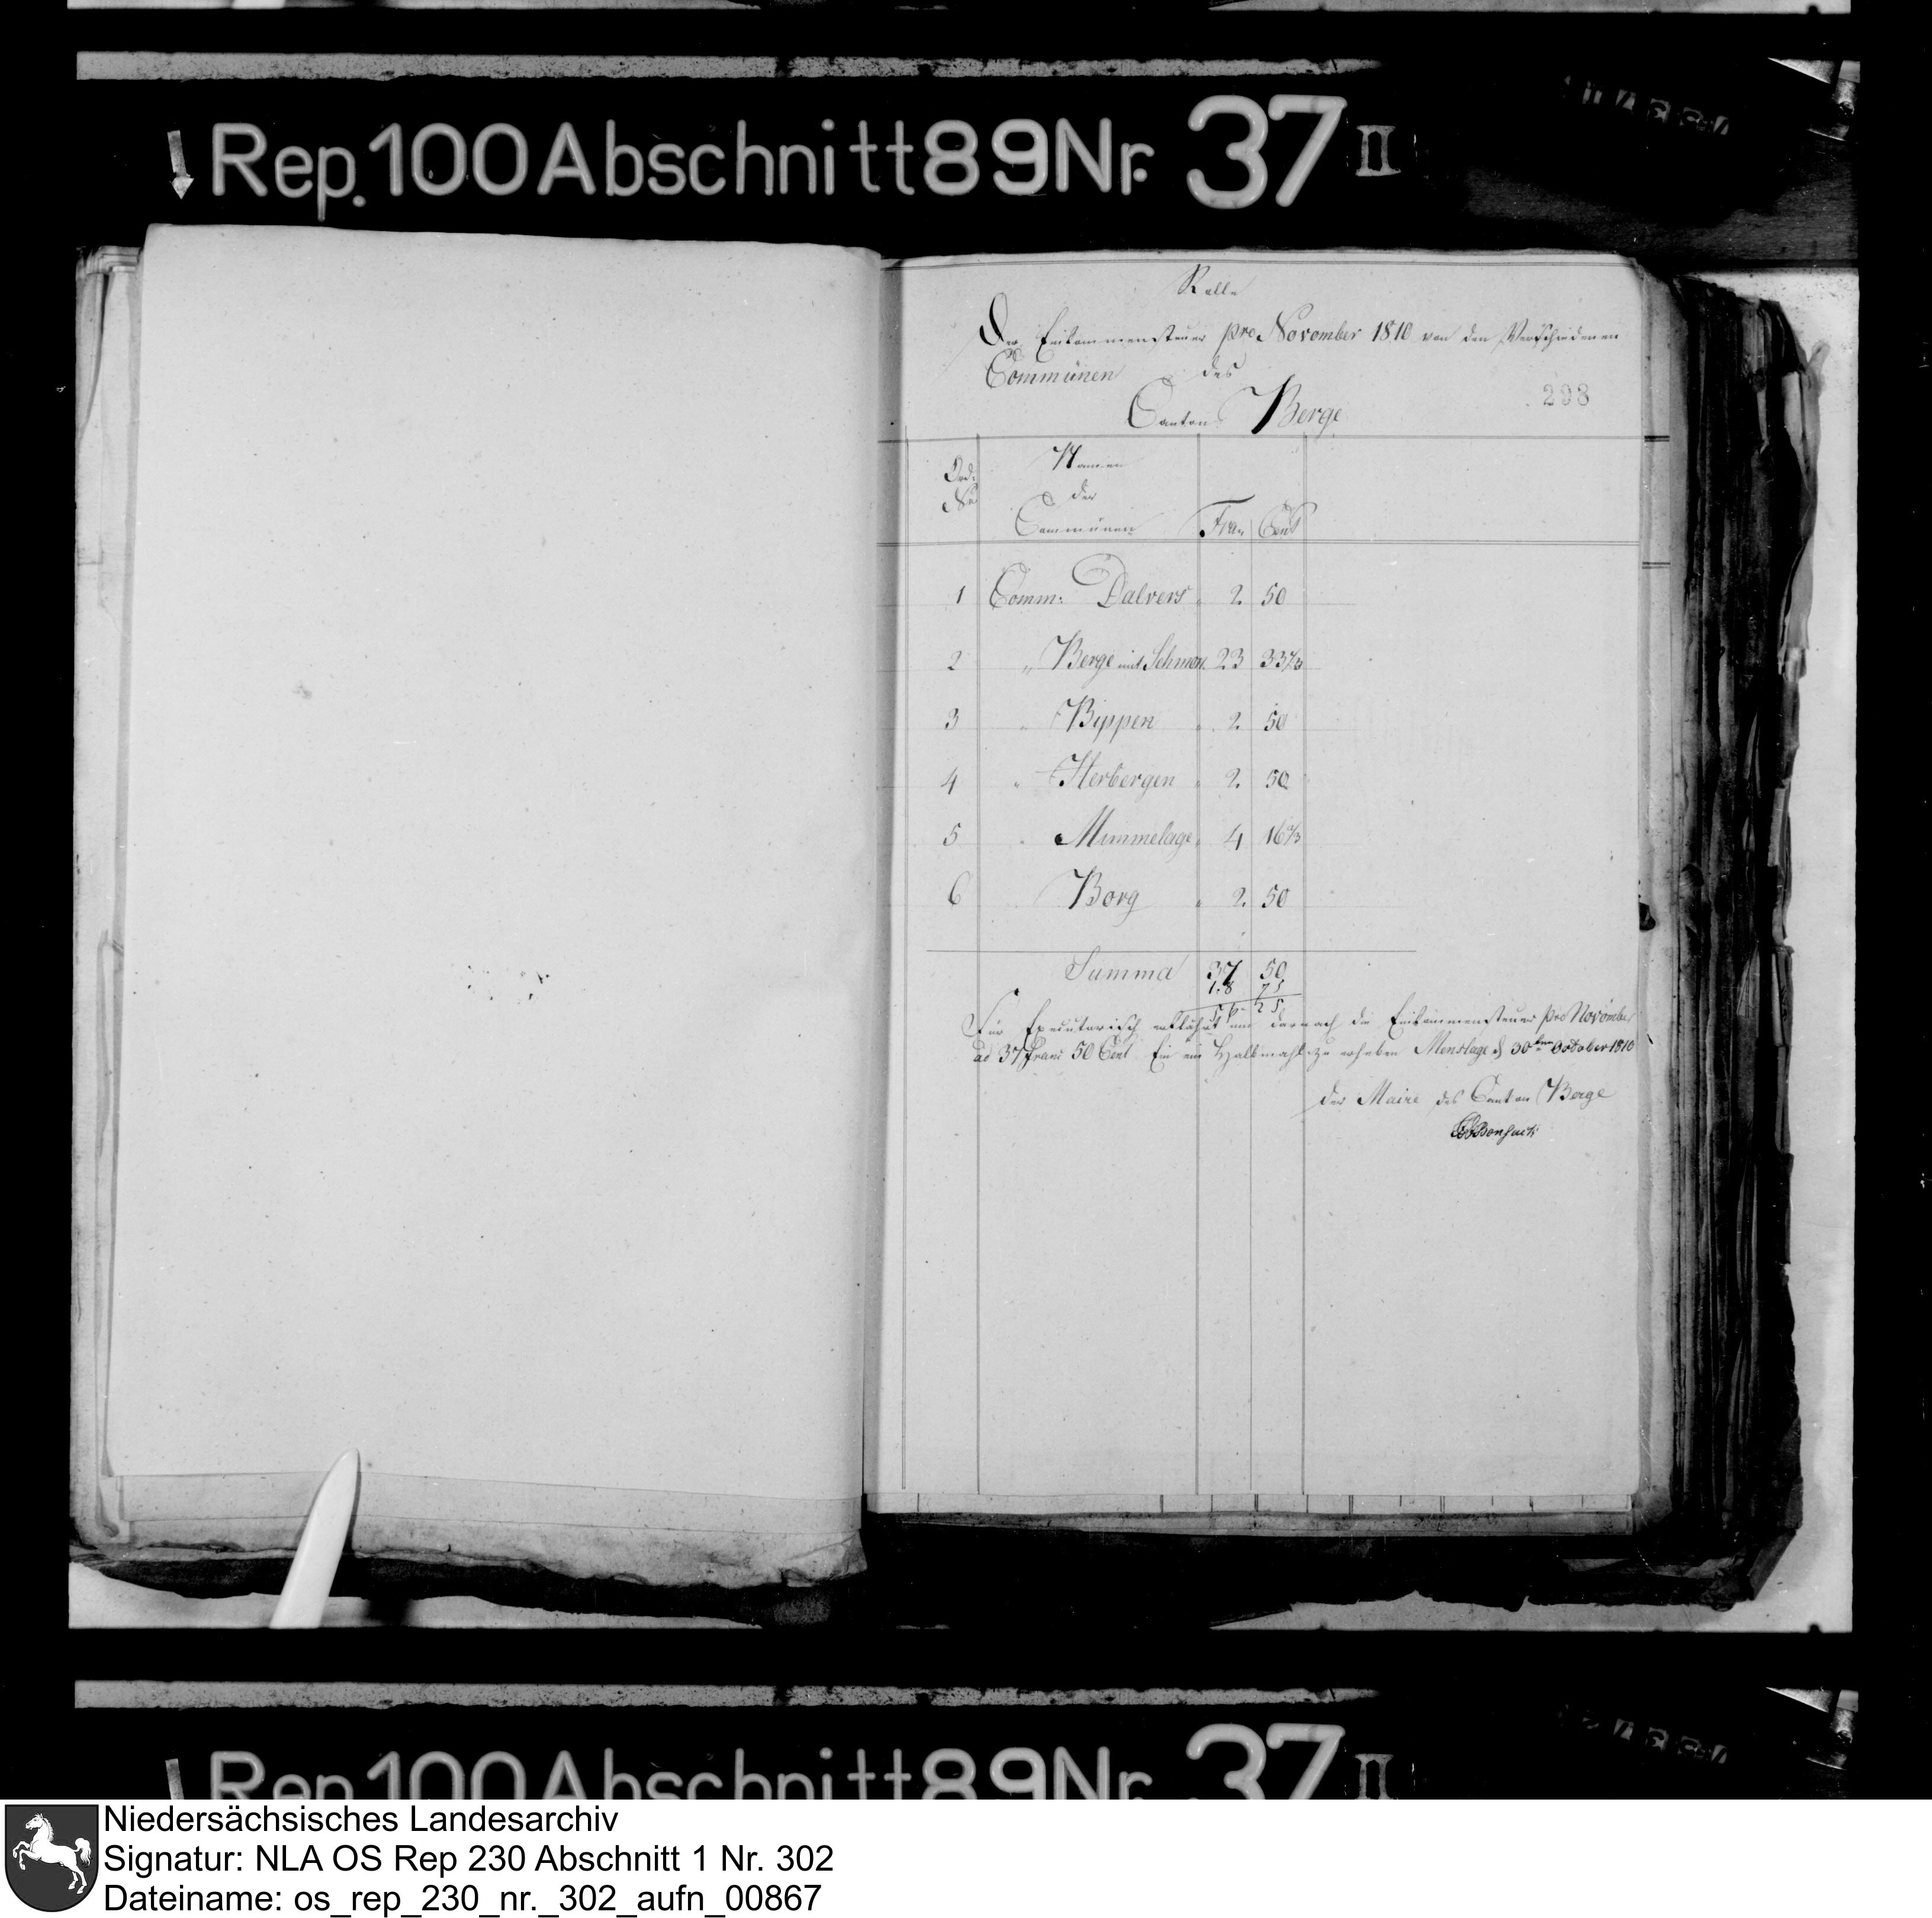 Rep. 100 Abschnitt 89 Nr. 37 II
Rolle
Der Einkommensteuer pro November 1810 von den Verschiedenen
Communen des
298
Canton Berge
Ord: Nr Namen der Communen Fran Cent
1 Comm: Dalvers 2. 50
2 " Berge mit Schmon 23 33 1/3
3 " Bippen 2. 50
4 " Herbergen 2. 50
5 " Mimmelage 4 16 2/3
6 Borg 2. 50
Summa 37 50
18 75
56 25
Für Executorisch erklährt und darnach die Einkommensteuer pro November
ad 37 Franc 50 Cent Ein ein Halbmahl zu erheben Menslage d 30ten October 1810
der Maire des Canton Berge
Rep. 100 Abschnitt 89 Nr. 37 II
Niedersächsisches Landesarchiv
Signatur: NLA OS Rep 230 Abschnitt 1 Nr. 302
Dateiname: os_rep_230_nr._302_aufn_00867